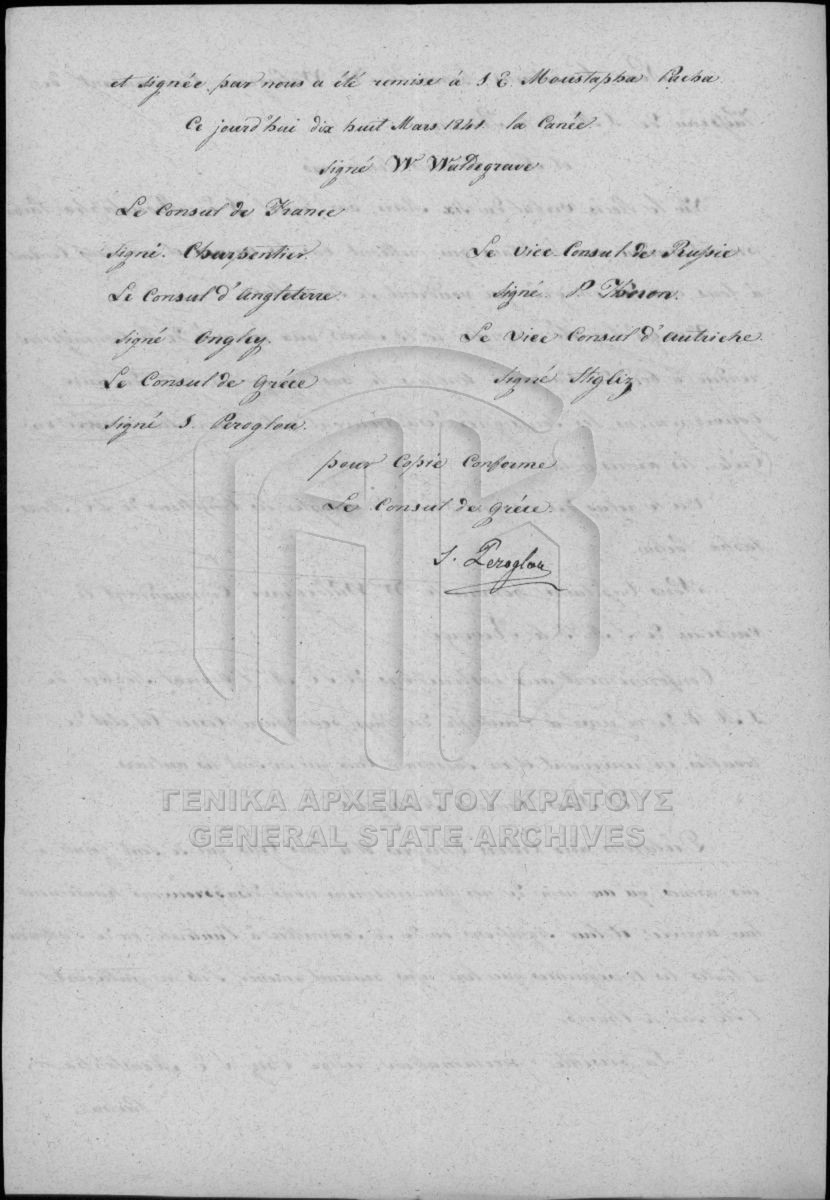 et signée par nous a été remise à S E. Moustapha Pacha
Ce jourd'hui dix huit Mars 1841 la Canée
signé W Waldegrave
Le Consul de France
signé. Charpentier.
Le Consul d'Angleterre.
signé Ongley.
Le Consul de Gréce
signé S. Peroglou.
Le Vice-Consul de Russie
signé P Thoron.
Le Vice Consul d'Autriche.
signé Stigliz
pour Copie Conforme
Le Consul de Gréce.
S. Peroglou
ΓΕΝΙΚΑ ΑΡΧΕΙΑ ΤΟΥ ΚΡΑΤΟΥΣ
GENERAL STATE ARCHIVES